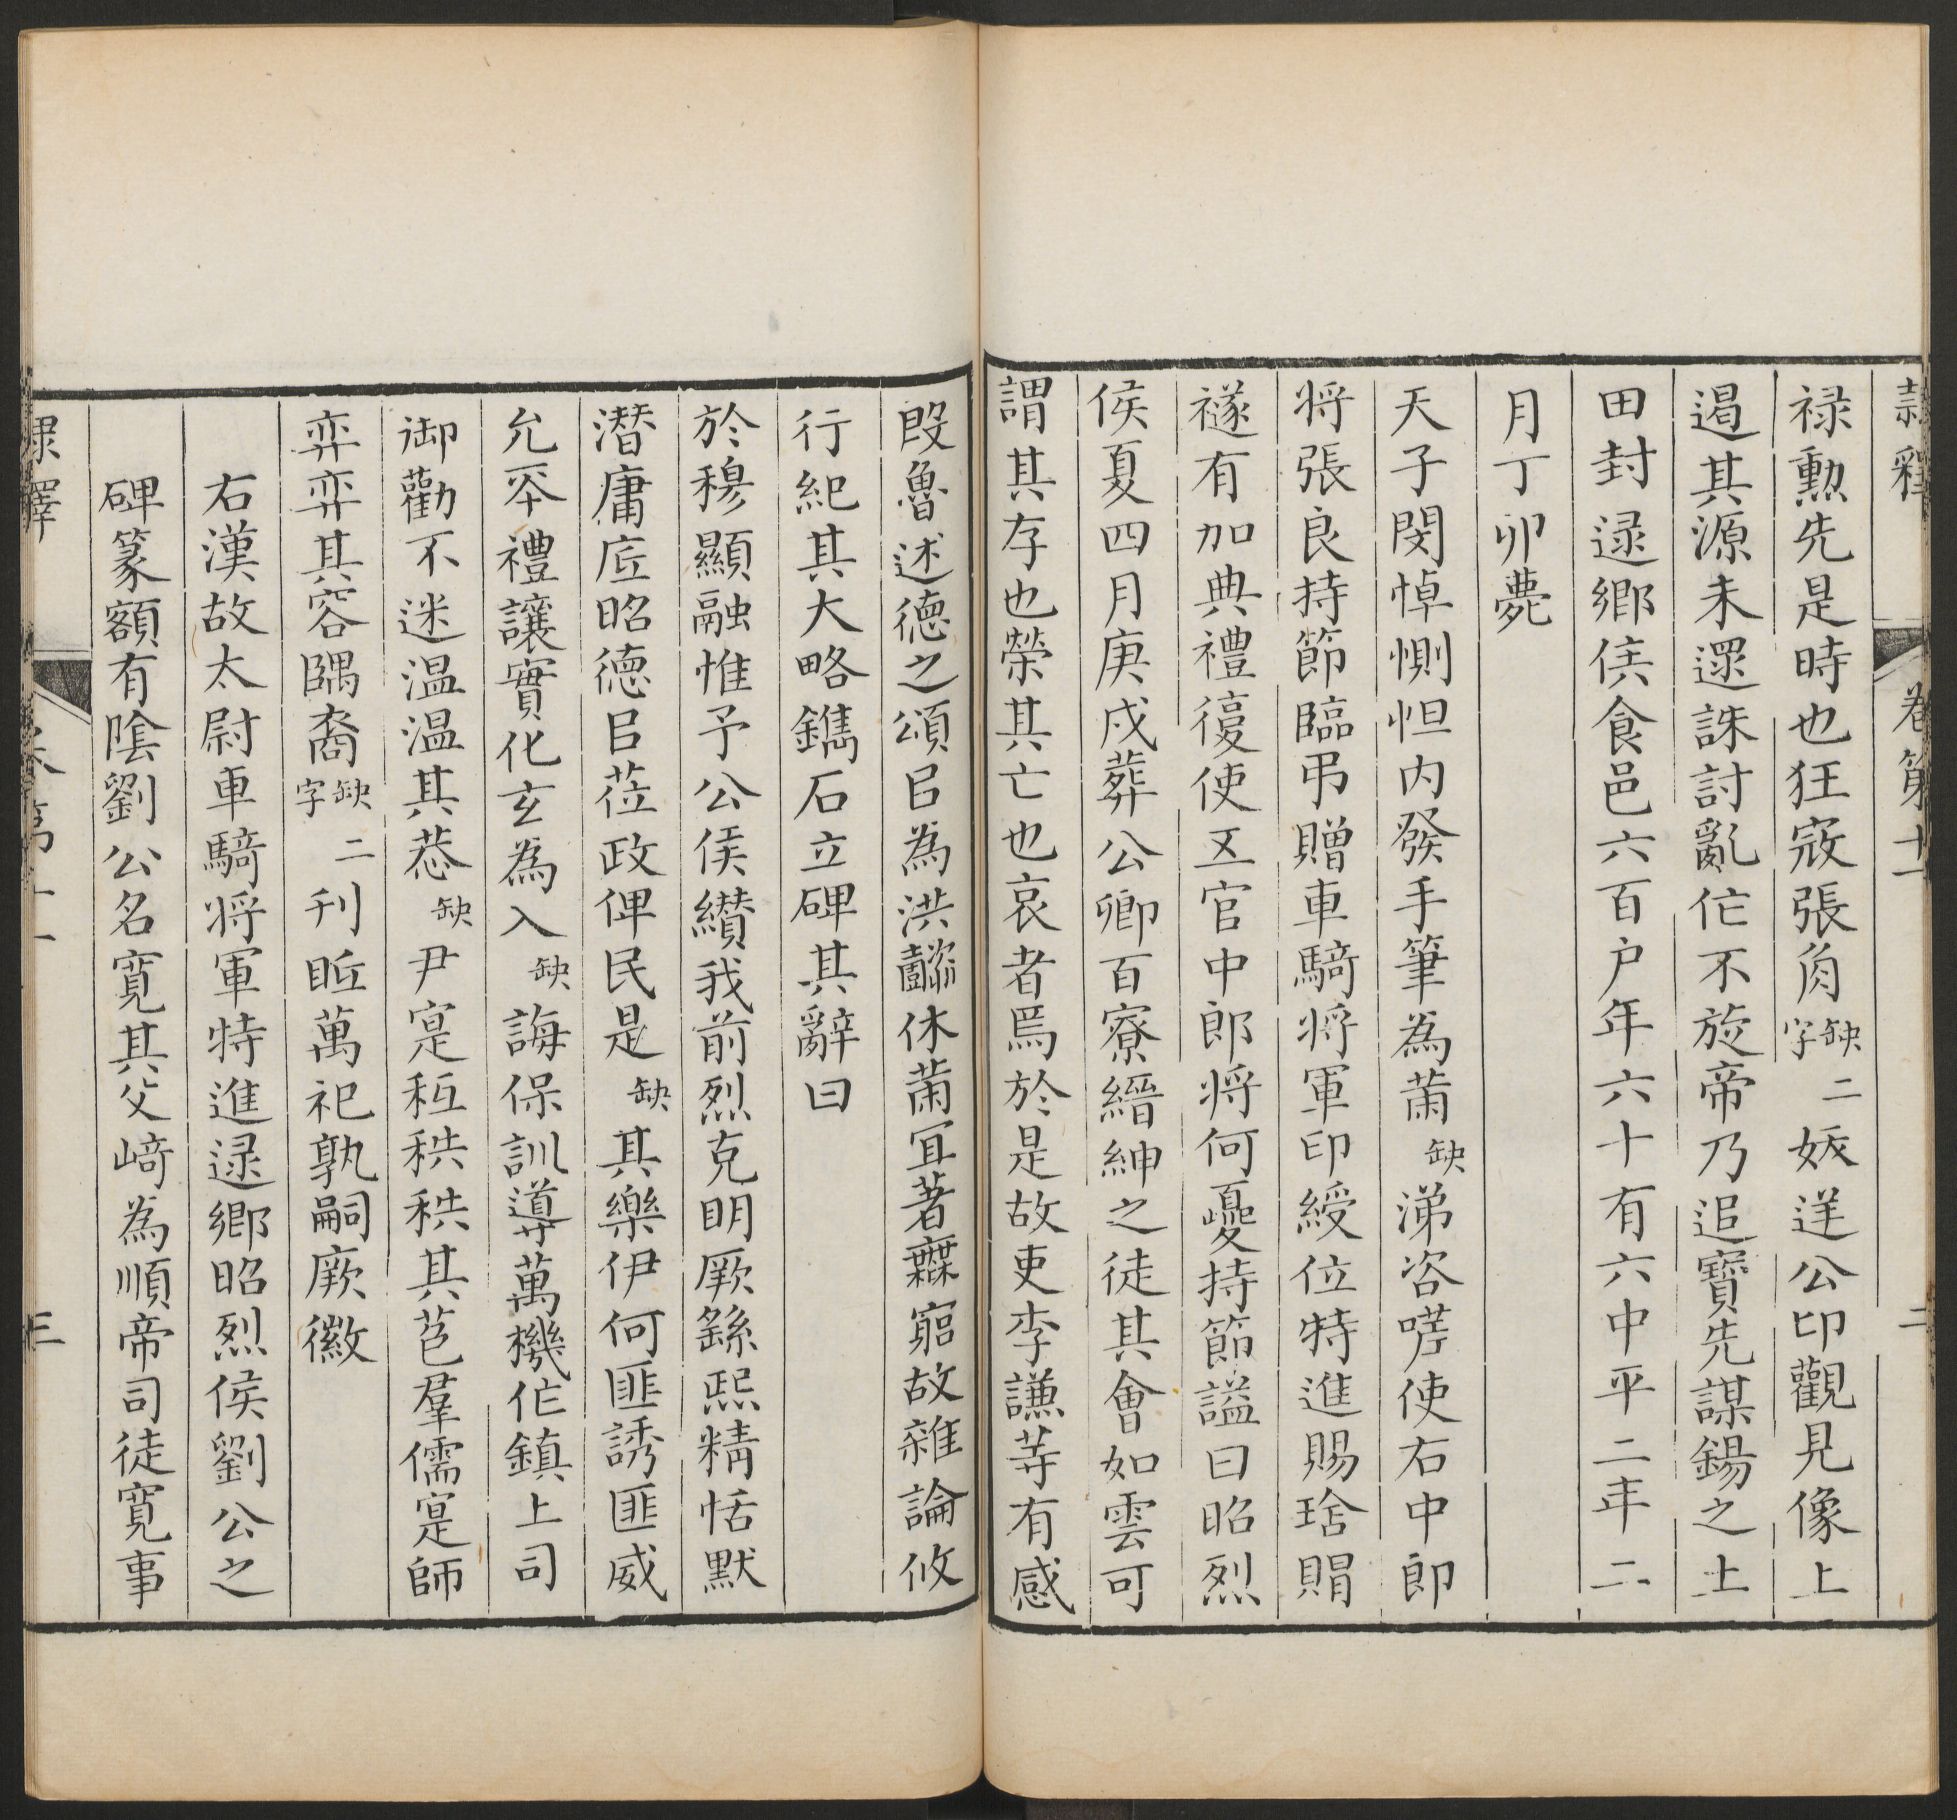 隸釋 卷第十一 二
禄勲先是時也狂寇張角缺二字妖逆公卬觀見像上
遏其源未還誅討亂作不旋帝乃追寶先謀錫之土
田封逯鄉侯食邑六百户年六十有六中平二年二
月丁卯薨
天子閔悼惻怛内發手筆為策缺涕咨嗟使右中郎
将張良持節臨弔贈車騎将軍印綬位特進賜琀賵
襚有加典禮復使五官中郎将何夔持節謚曰昭烈
侯夏四月庚戌葬公卿百寮縉紳之徒其會如雲可
謂其存也榮其亡也哀者焉於是故吏李謙等有感
殷魯述徳之頌㠯為洪懿休策宜著窮故雜論攸
行紀其大略鐫石立碑其辭曰
於穆顯融惟予公侯纉我前烈克明厥繇熙精恬默
潜庸㡳昭徳㠯莅政俾民是缺其樂伊何匪誘匪威
允平禮讓實化玄為入缺誨保訓導萬機作鎮上司
御勸不迷温温其恭缺尹寔秬秩秩其芑羣儒寔師
弈弈其容隅裔缺二字刊眂萬祀孰嗣厥徽
右漢故太尉車騎将軍特進逯鄉昭烈侯劉公之
碑篆額有陰劉公名寛其父﨑為順帝司徒寛事
隸釋 卷第十一 三